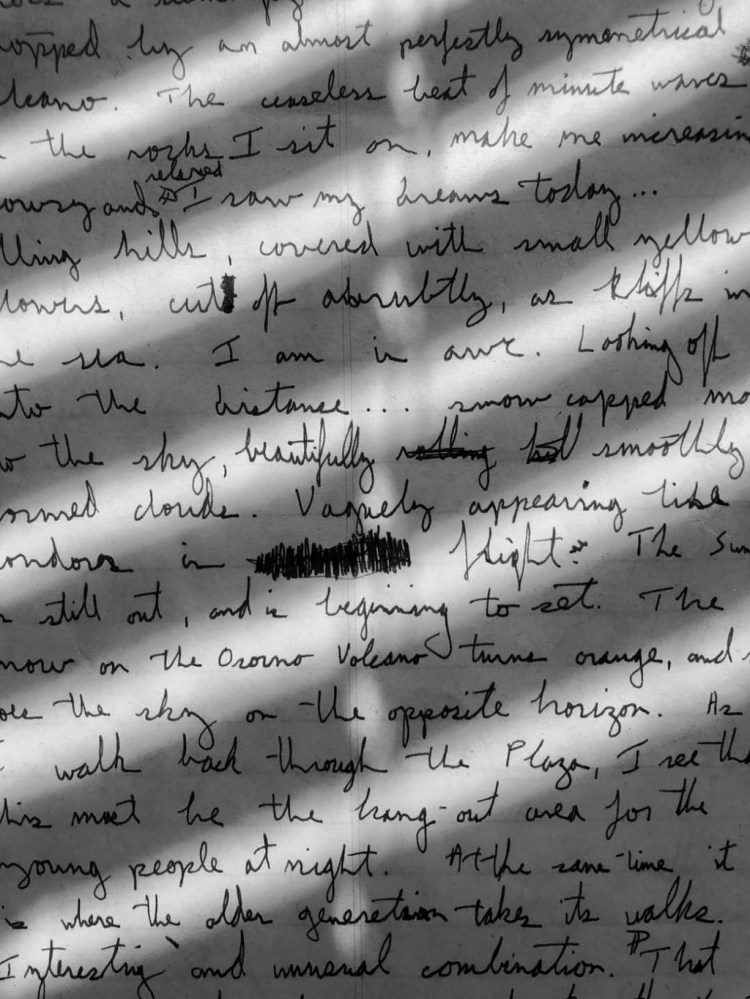 topped by an almost perfectly symmetrical
lcano. The ceaseless beat of minute waves
the rocks I sit on, make me increasin
relaxed
owsy and I saw my dreams today...
lling hills, covered with small yellow
lowers, cut off abrubtly, as kliffs in
he sea. I am in awe. Looking off
nto the distance... snow capped mo
to the sky, beautifully rolling smoothly
ormed clouds. Vaguely appearing like
ondors in flight. The Sun
is still out, and is beginning to set. The
now on the Osorno Volcano turns orange, and
the sky on the opposite horizon. As
I walk back through the Plaza, I see tha
his must be the hang-out area for the
young people at night. At the same time it
is where the older generation takes its walks.
Interesting and unusual combination. That